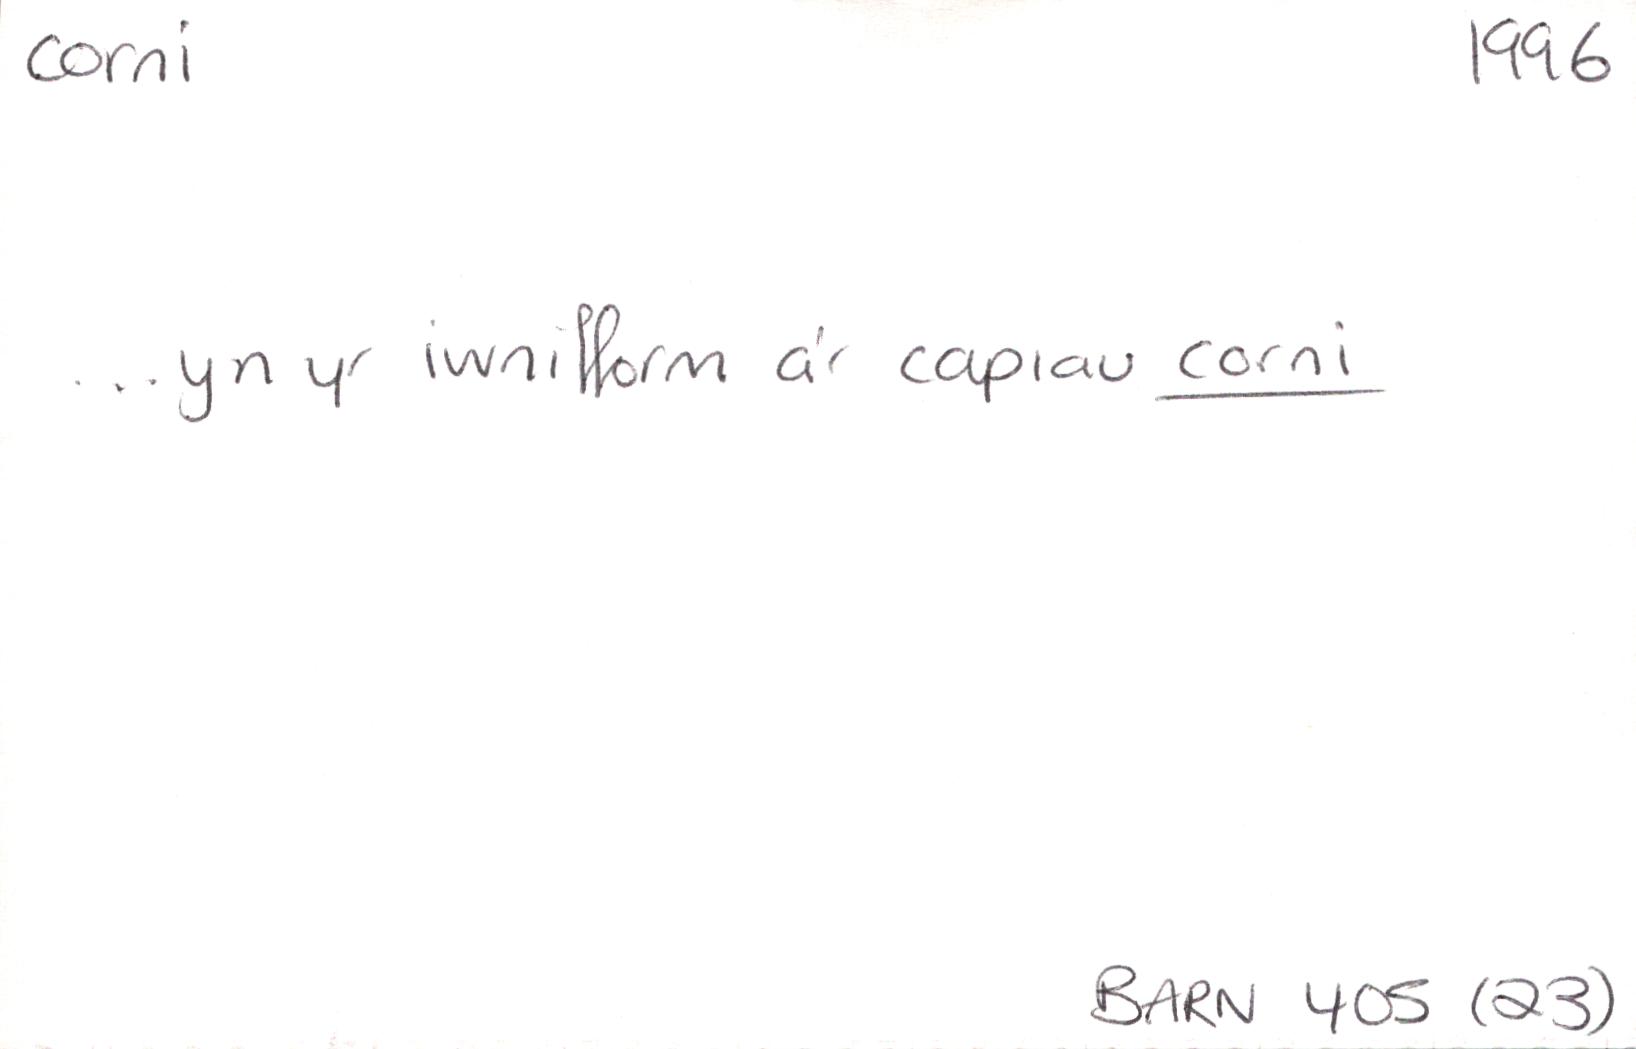 corni 1996
...yn yr iwnifform a'r capiau corni
BARN 405 (23)